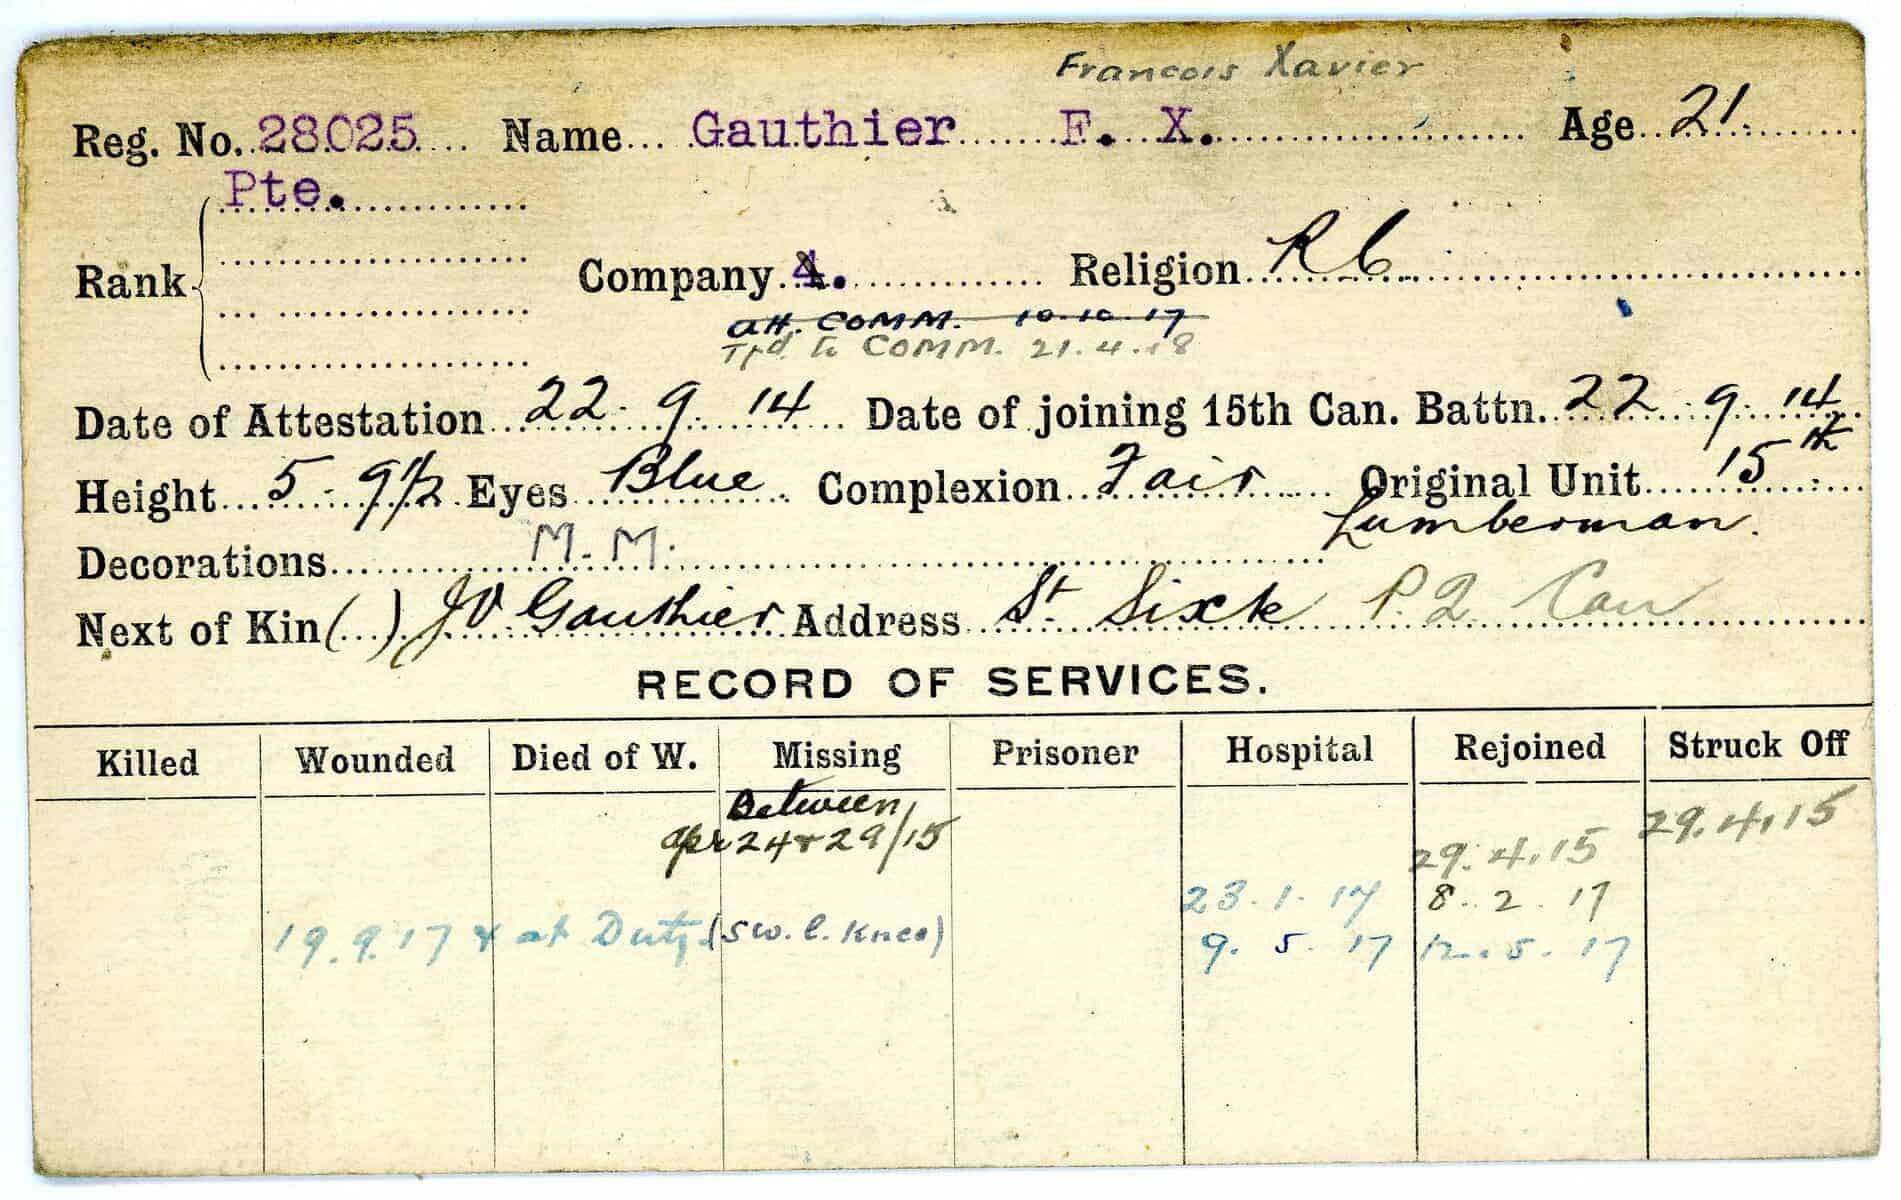 Francois Xavier
Reg. No. 28025 Name Gauthier F. X. Age 21.
Pte.
Rank Company 4. Religion R C
att. COMM. 10.10.17
Trfd. to COMM. 21.4.18
Date of Attestation 22. 9. 14 Date of joining 15th Can. Battn. 22 9. 14
Height 5 - 9 1/2 Eyes Blue Complexion Fair Original Unit 15th
Lumberman.
Decorations M. M.
Next of Kin (...) Gauthier Address St. Sixte P. Q Can
RECORD OF SERVICES.
Killed Wounded Died of W. Missing Prisoner Hospital Rejoined Struck Off
Between
Apr 24 & 29/15 29.4.15 29.4.15
23.1.17 8.2.17
19.9.17 & at Duty (SW. l. Knee) 9.5.17 12.5.17